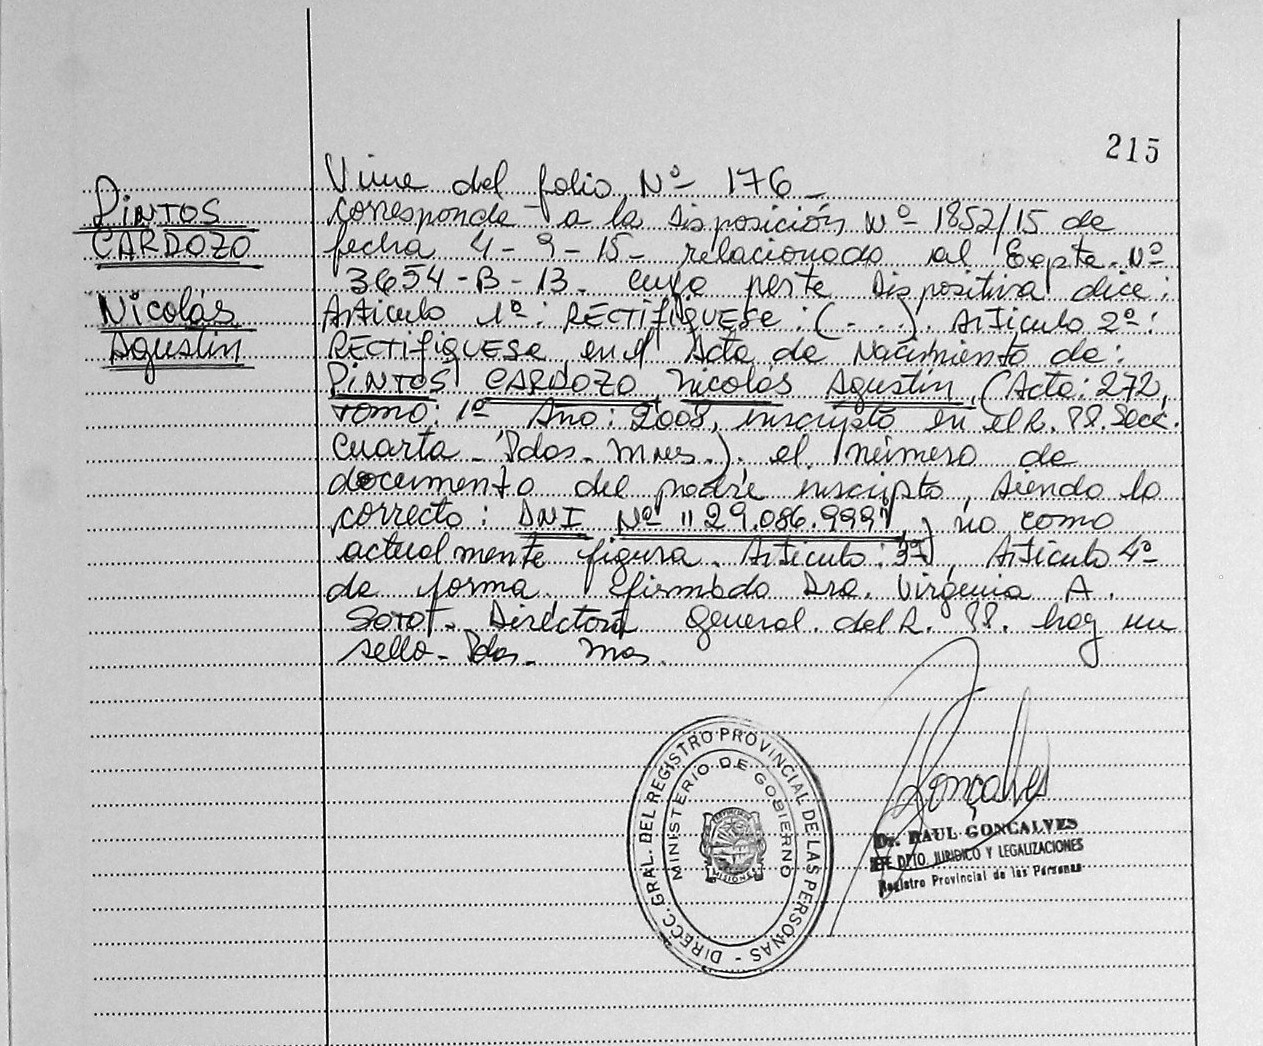 215
Viene del folio Nº 176 -
PINTOS
CARDOZO
Nicolás
Agustin
corresponde a la Disposición Nº 1852/15 de
fecha 4-9-15- relacionado al Expte. Nº
3654-B-13. cuya parte Dispositiva dice:
Articulo 1º: RECTIFIQUESE: (...). Articulo 2º:
RECTIFIQUESE en el Acta de Nacimiento de:
PINTOS CARDOZO, Nicolás Agustin, (Acta: 272,
Tomo: 1º Año: 2008, inscripto en el R. PP. Secc.
cuarta - Pdas. Mnes.). el número de
documento del padre inscripto, siendo lo
correcto: DNI Nº "29.086.999" y no como
actualmente figura. Articulo: 3º), Articulo 4º
de forma. firmado Dra. Virginia A.
Directora general del R. PP. hay un
sello- Pdas. Mnes.
DIRECC. GRAL. DEL REGISTRO PROVINCIAL DE LAS PERSONAS -
MINISTERIO DE GOBIERNO
MISIONES
Gonçalves
Dr. RAUL GONCALVES
JEFE DPTO. JURIDICO Y LEGALIZACIONES
Registro Provincial de las Personas